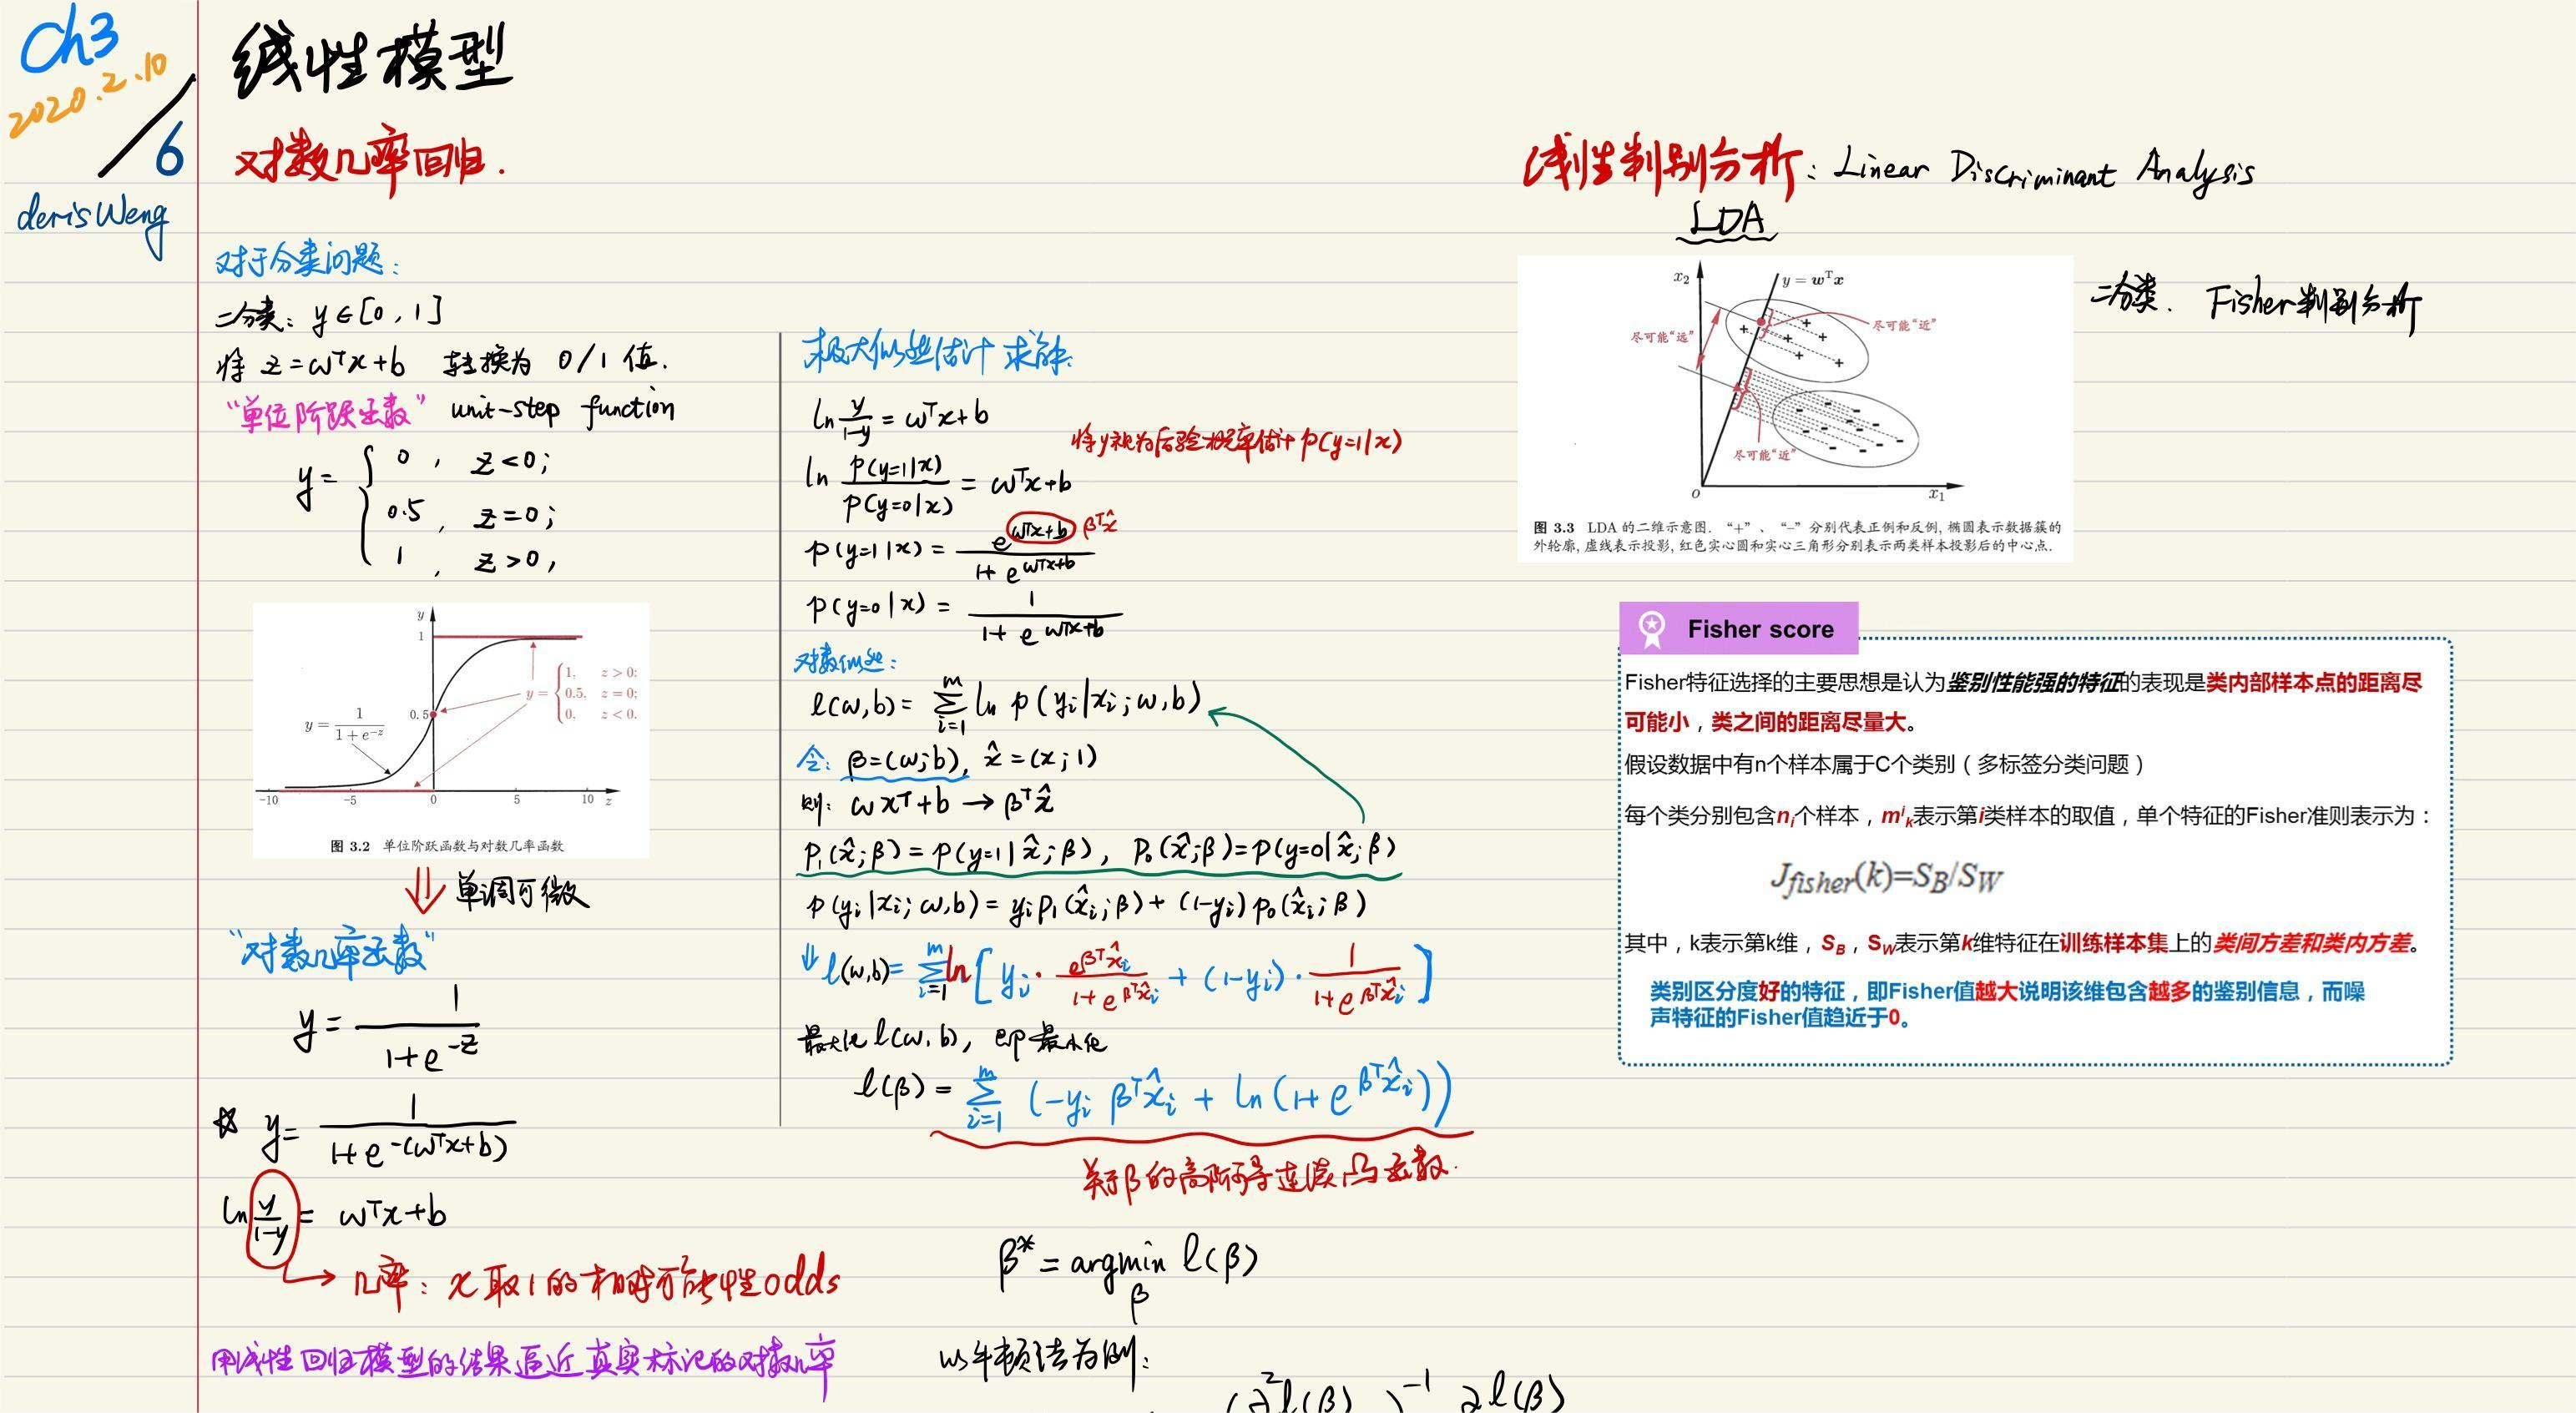 Ch3
2020.2.10
/6
derisWeng
线性模型
对数几率回归.
对于分类问题:
二分类: y∈[0,1]
将 z=ωᵀx+b 转换为 0/1 值.
"单位阶跃函数" unit-step function
y= { 0, z<0;
0.5, z=0;
1, z>0,
y
1
y = { 1, z > 0;
0.5, z = 0;
0, z < 0.
0.5
y = 1/(1+e^{-z})
-10 -5 0 5 10 z
图 3.2 单位阶跃函数与对数几率函数
⇓ 单调可微
"对数几率函数"
y = 1/(1+e^{-z})
☆ y = 1/(1+e^{-(ωᵀx+b)})
ln y/(1-y) = ωᵀx+b
→ 几率: x取1的相对可能性odds
用线性回归模型的结果逼近真实标记的对数几率
极大似然估计 求解:
ln y/(1-y) = ωᵀx+b
将y视为后验概率估计 p(y=1|x)
ln p(y=1|x)/p(y=0|x) = ωᵀx+b
p(y=1|x) = e^{ωᵀx+b}/(1+e^{ωᵀx+b}) βᵀx̂
p(y=0|x) = 1/(1+e^{ωᵀx+b})
对数似然:
ℓ(ω,b) = Σ_{i=1}^{m} ln p(yᵢ|xᵢ;ω,b)
令: β=(ω;b), x̂=(x;1)
则: ωxᵀ+b → βᵀx̂
p₁(x̂;β)=p(y=1|x̂;β), p₀(x̂;β)=p(y=0|x̂;β)
p(yᵢ|xᵢ;ω,b) = yᵢp₁(x̂ᵢ;β)+(1-yᵢ)p₀(x̂ᵢ;β)
↓ ℓ(ω,b) = Σ_{i=1}^{m} ln[yᵢ·e^{βᵀx̂ᵢ}/(1+e^{βᵀx̂ᵢ}) + (1-yᵢ)·1/(1+e^{βᵀx̂ᵢ})]
最大化ℓ(ω,b), 即最小化
ℓ(β) = Σ_{i=1}^{m} (-yᵢβᵀx̂ᵢ + ln(1+e^{βᵀx̂ᵢ}))
关于β的高阶可导连续凸函数.
β* = argmin_β ℓ(β)
以牛顿法为例:
(∂²ℓ(β) )⁻¹ ∂ℓ(β)
线性判别分析: Linear Discriminant Analysis
LDA
x₂
y = wᵀx
尽可能"远"
尽可能"近"
尽可能"近"
O
x₁
图 3.3 LDA 的二维示意图. "+"、"–"分别代表正例和反例, 椭圆表示数据簇的
外轮廓, 虚线表示投影, 红色实心圆和实心三角形分别表示两类样本投影后的中心点.
二分类. Fisher判别分析
Fisher score
Fisher特征选择的主要思想是认为鉴别性能强的特征的表现是类内部样本点的距离尽
可能小，类之间的距离尽量大。
假设数据中有n个样本属于C个类别（多标签分类问题）
每个类分别包含nᵢ个样本，mⁱₖ表示第i类样本的取值，单个特征的Fisher准则表示为：
J_fisher(k)=S_B/S_W
其中，k表示第k维，S_B，S_W表示第k维特征在训练样本集上的类间方差和类内方差。
类别区分度好的特征，即Fisher值越大说明该维包含越多的鉴别信息，而噪
声特征的Fisher值趋近于0。